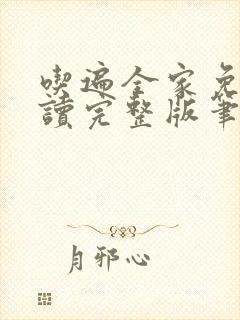 喫遍全家免
讀完整版筆
月邪心